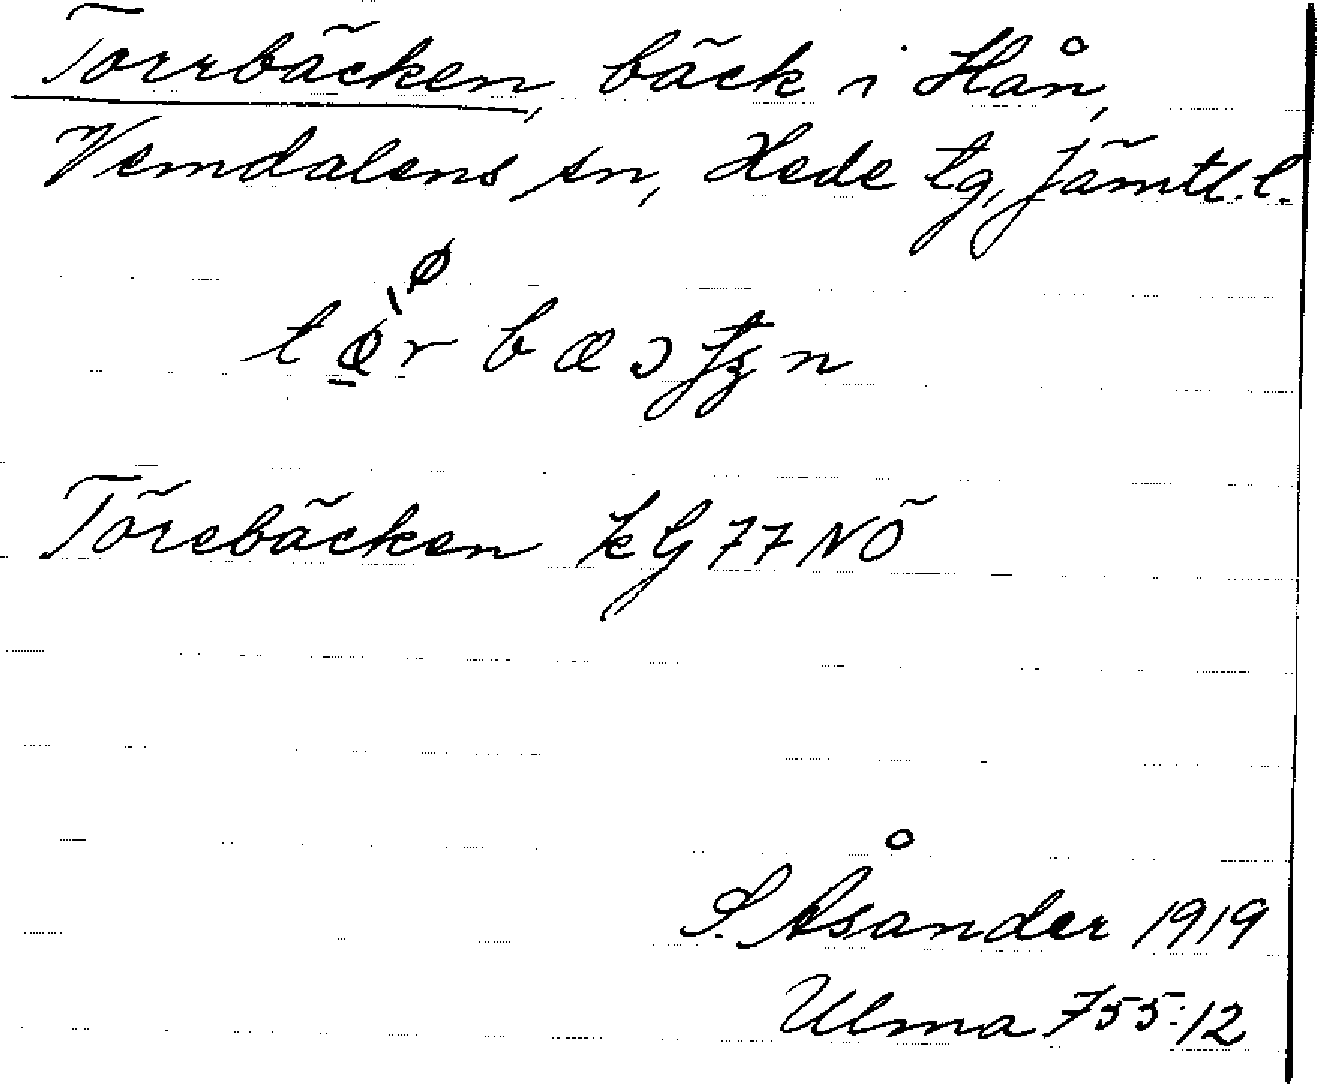 Torrbäcken, bäck i Hån,
Vemdalens sn, Hede tg, Jämtl.l.
Törebäcken kG 77 NÖ
S. Åsander 1919
Ulma 755:12